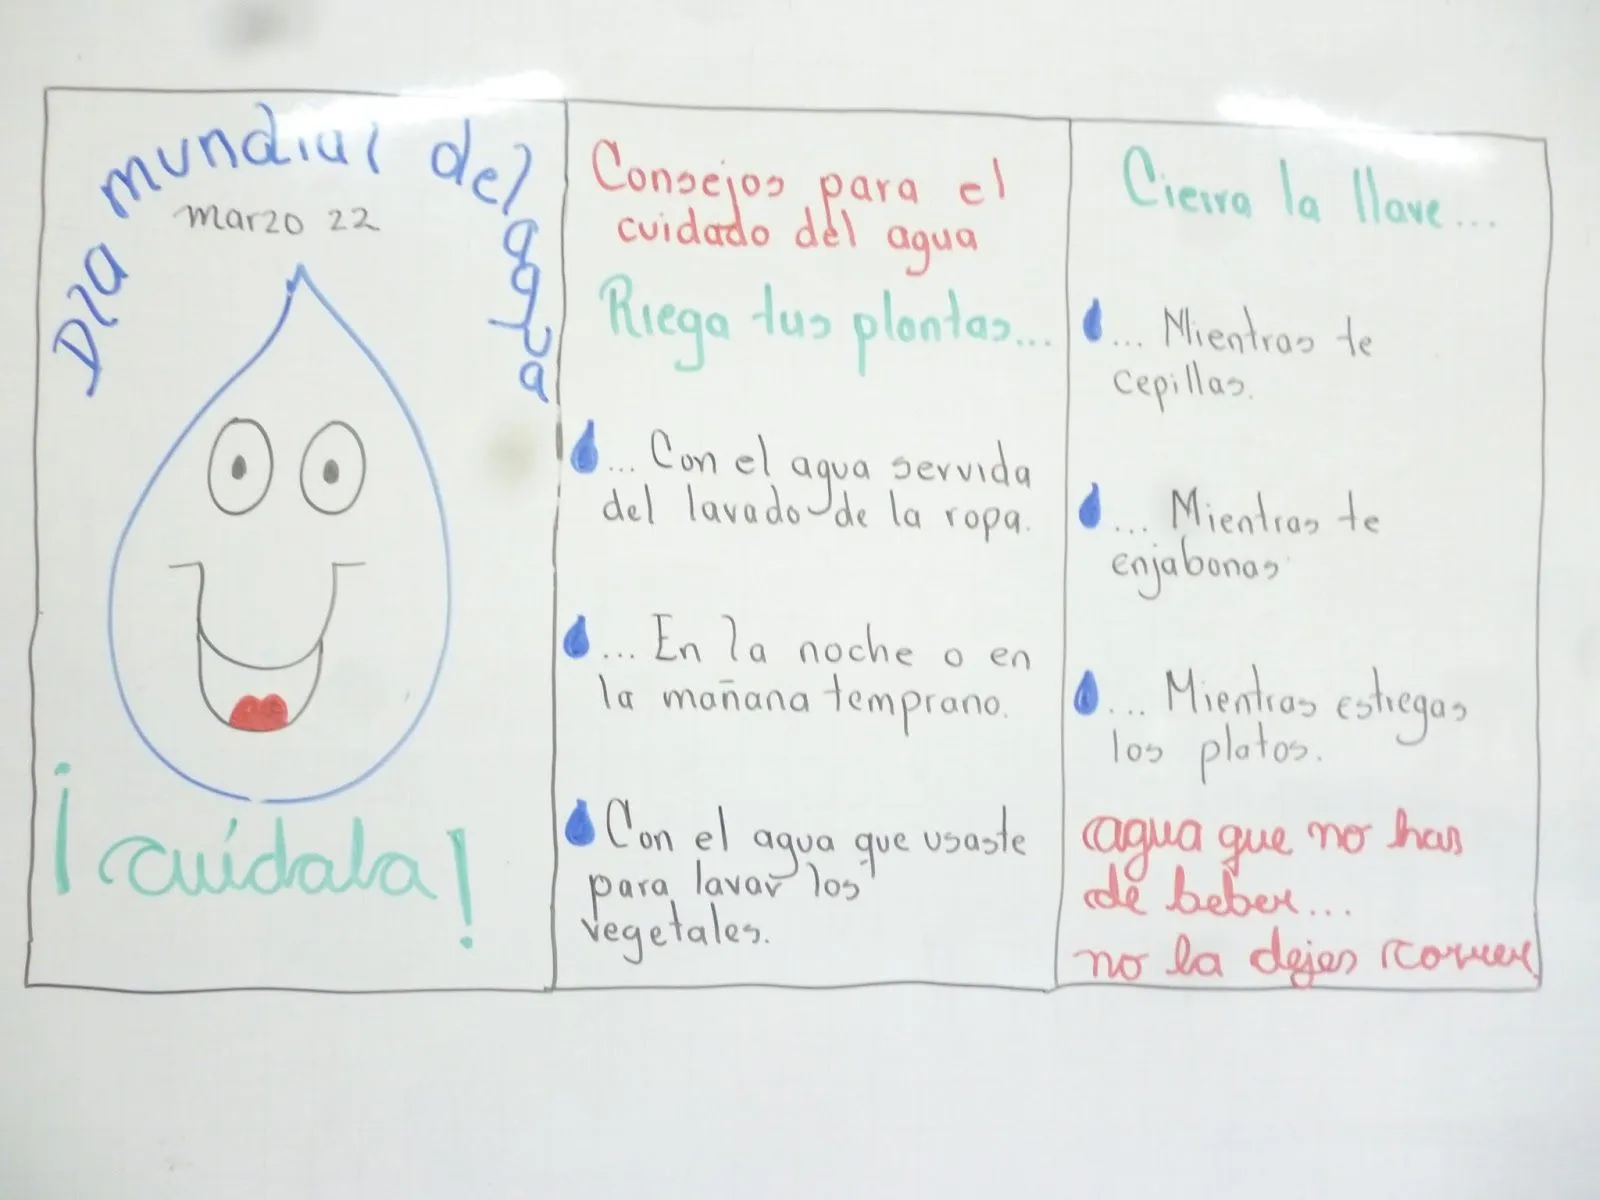 Día mundial del agua
marzo 22
¡cuídala!
Consejos para el
cuidado del agua
Riega tus plantas...
... Con el agua servida
del lavado de la ropa.
... En la noche o en
la mañana temprano.
Con el agua que usaste
para lavar los
vegetales.
Cierra la llave...
... Mientras te
cepillas.
... Mientras te
enjabonas
... Mientras estregas
los platos.
agua que no has
de beber...
no la dejes correr